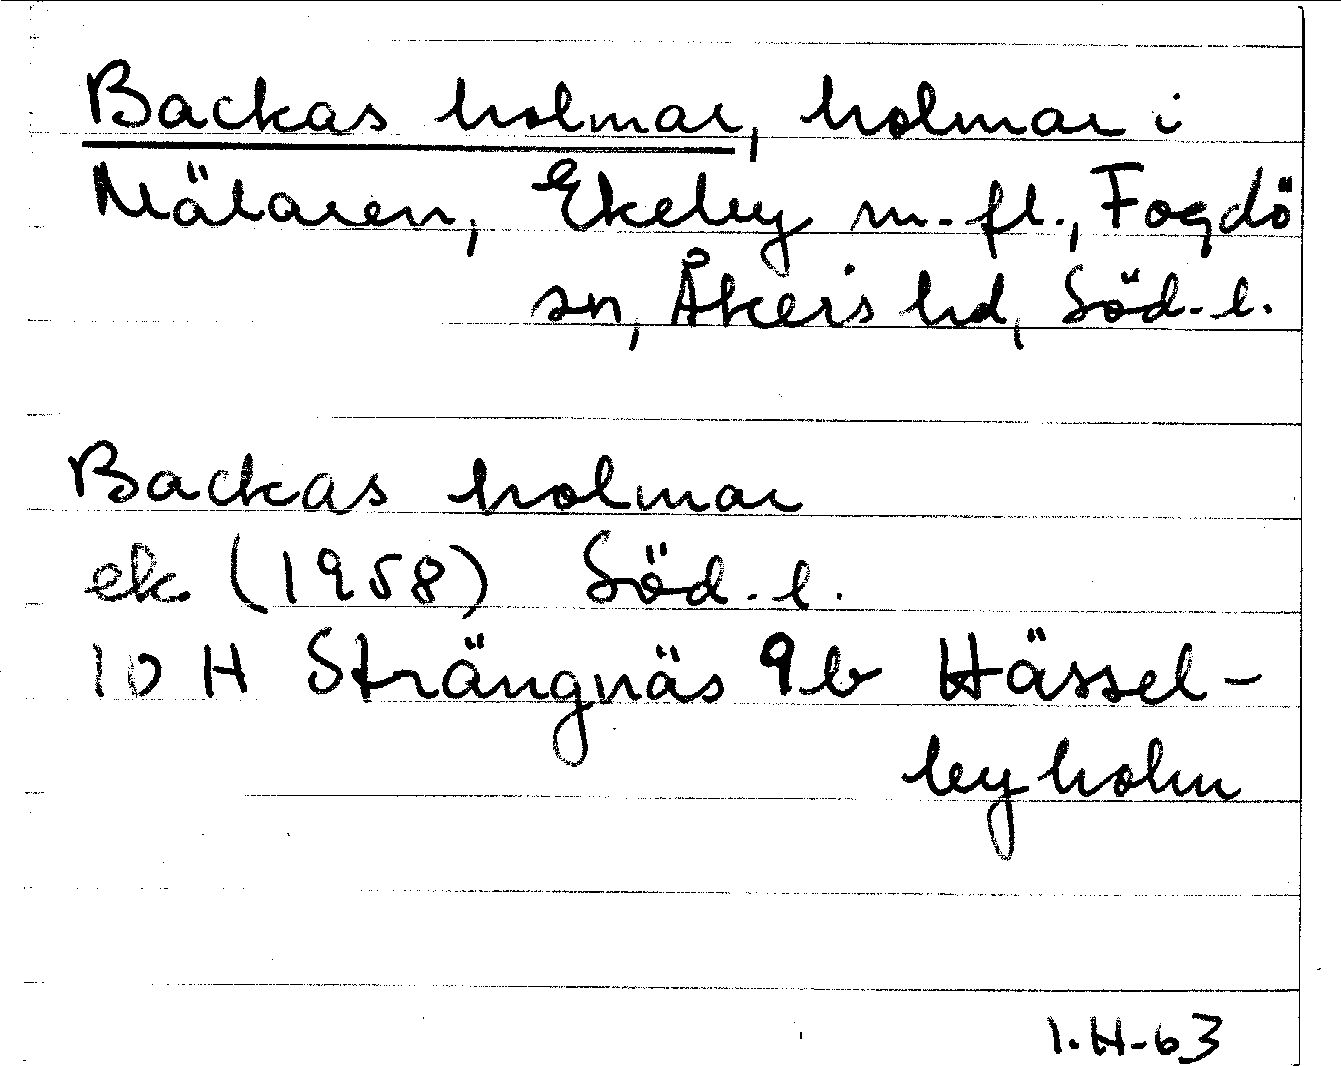 Backas holmar, holmar i
Mälaren, Ekeby m.fl., Fogdö
sn, Åkers hd, Söd.l.
Backas holmar
ek (1958) Söd.l.
10 H Strängnäs 9b Hässel-
byholm
I.H-63